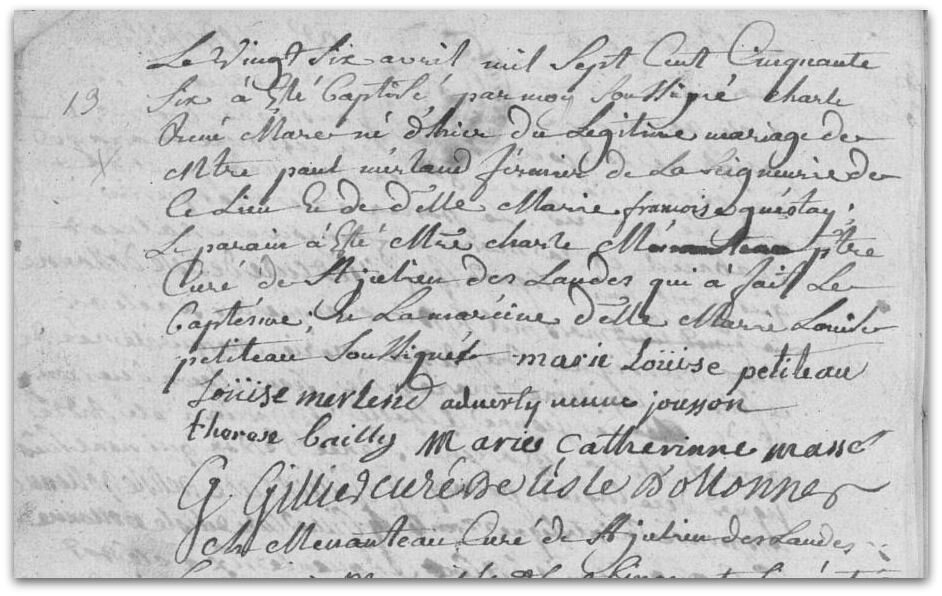 Le vingt six avril mil Sept Cent Cinquante
13 Six à Eté baptisé par moy Soussigné charle
René Marc né d'hier du Legitime mariage de
Mtre paul mérland férmier de La Seigneurie de
Ce Lieu Et de d'elle Marie francoise
Le parain à Eté Mtre charle ptre
Curé de St julien des Landes qui à fait Le
baptésme, Et La maréine d'elle Marie Louise
petiteau Soussignés marie Loüise petiteau
Loüise merlend veuve
therese bailly Marie Catherinne massé
G. Gillier curé De l'isle D'ollonne
ch Menanteau Curé de St julien des Landes